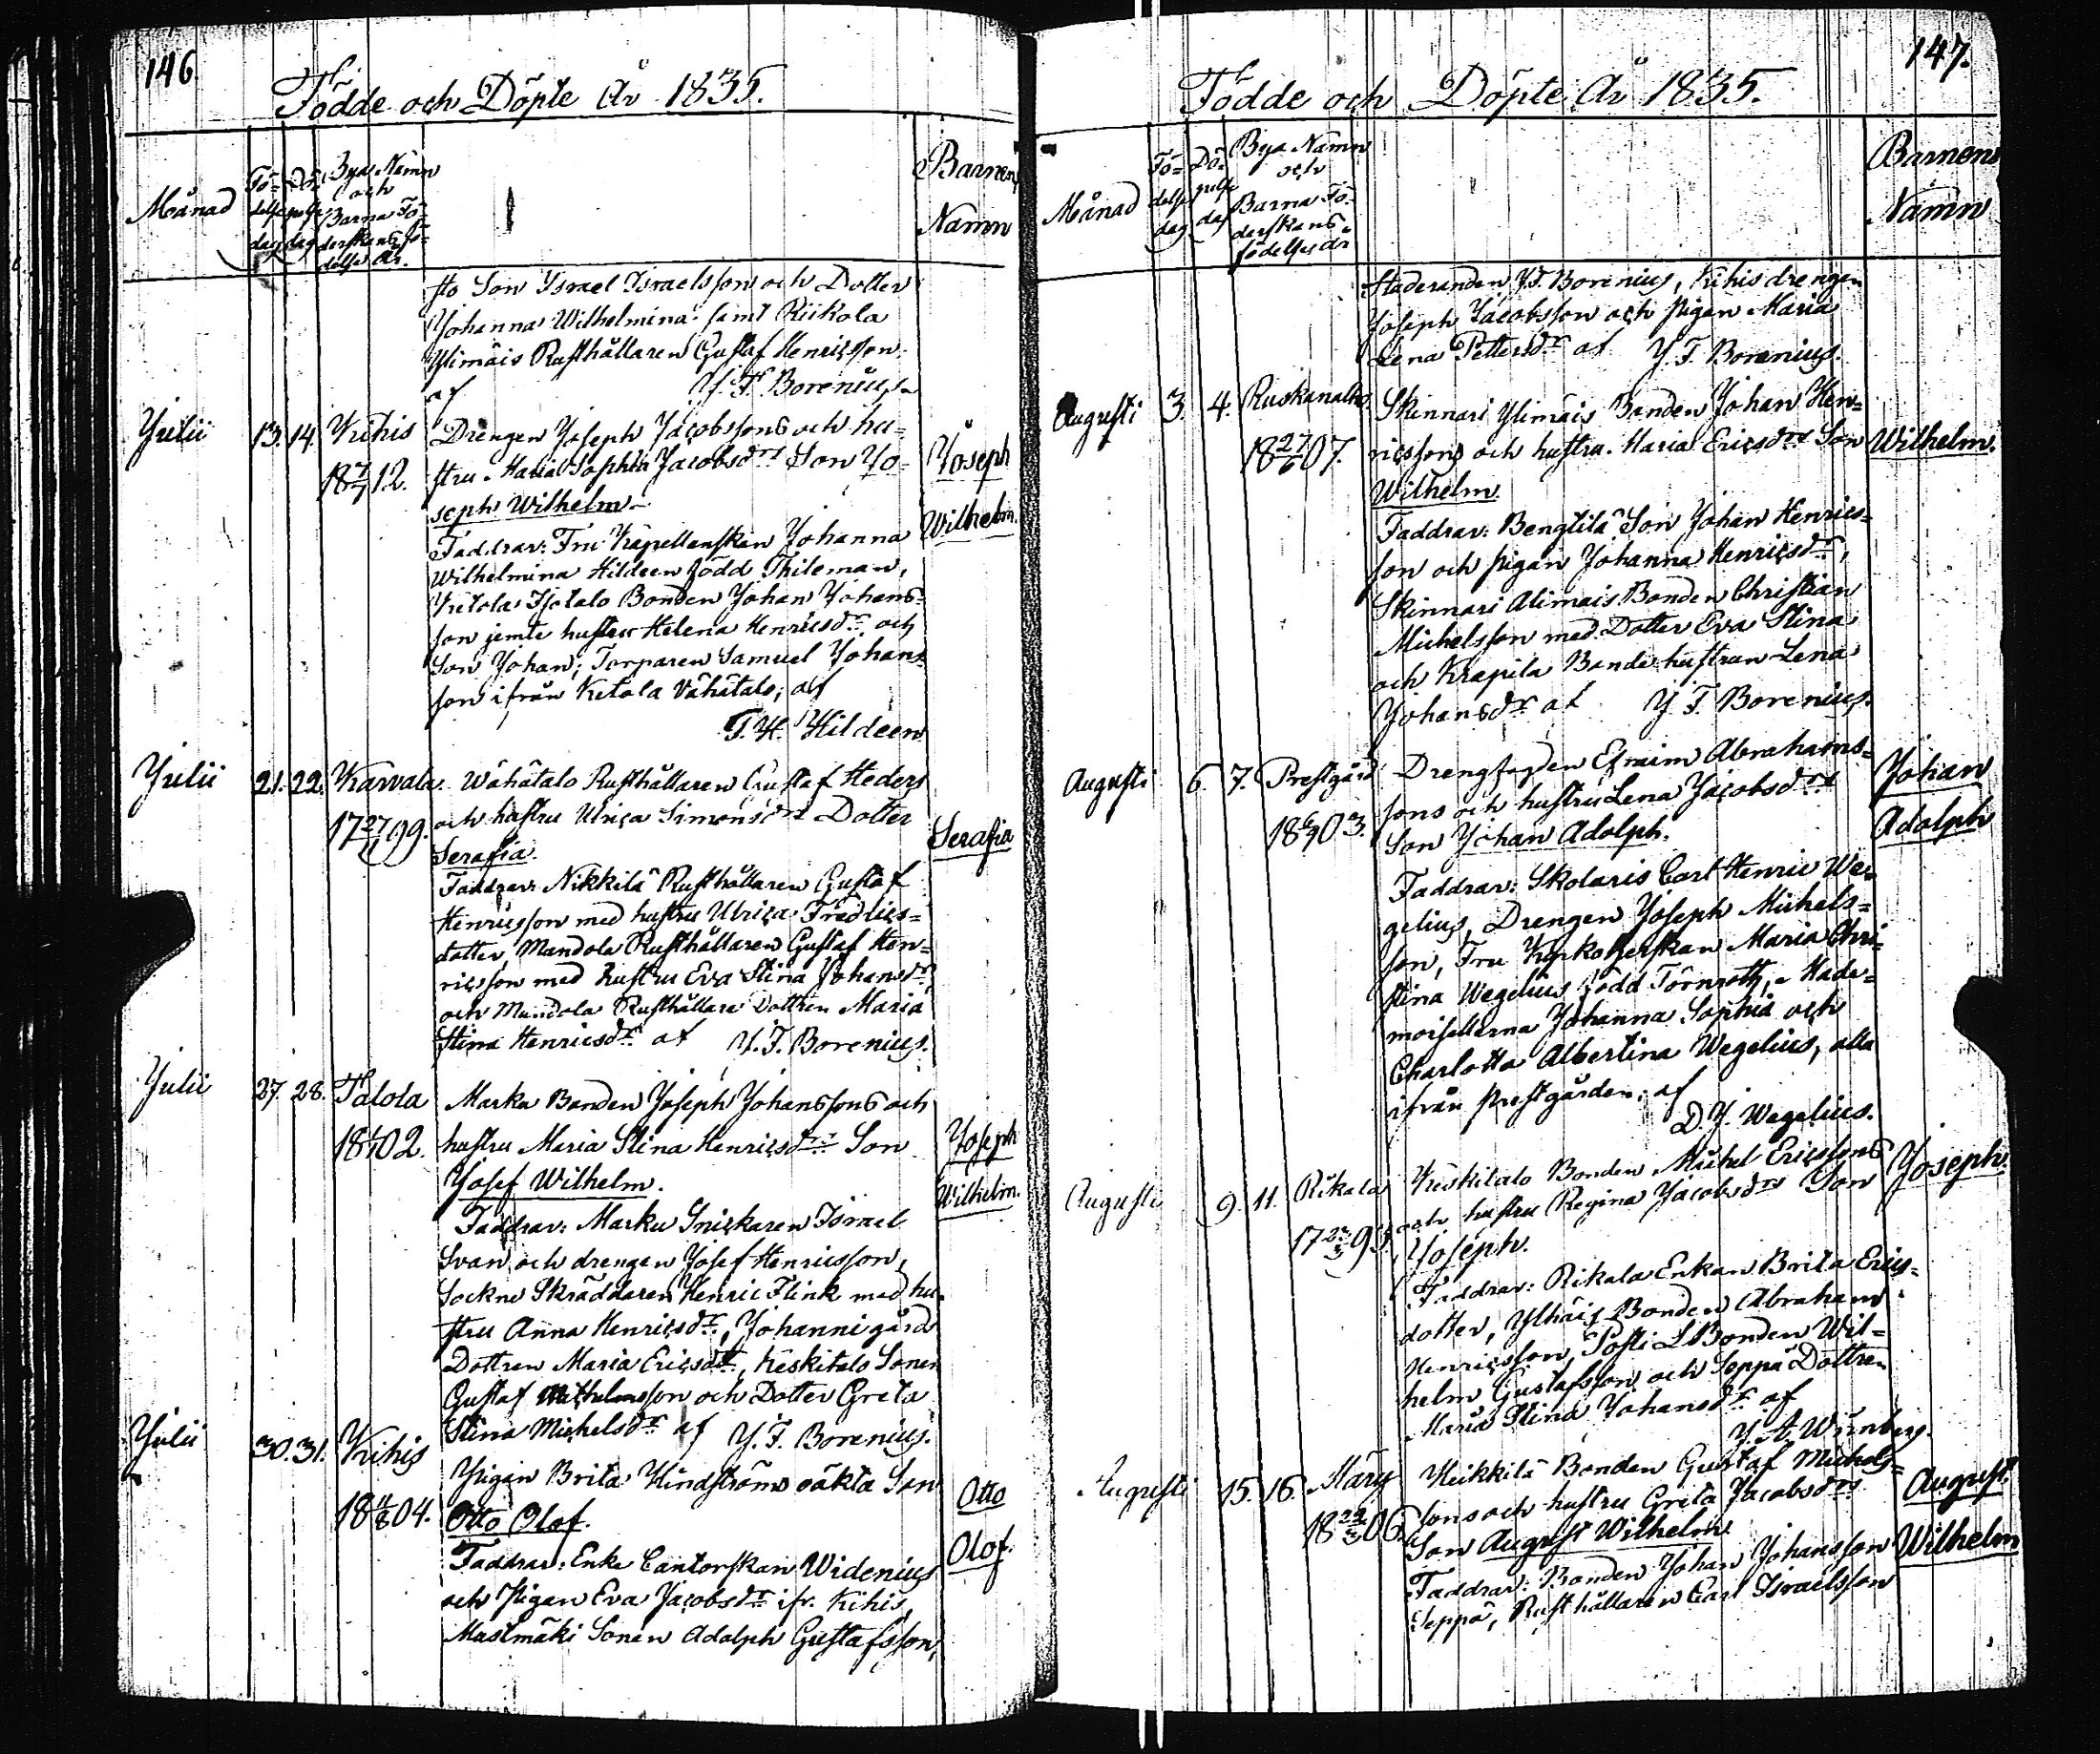 146.
Födde och Döpte År 1835.
Månad
Fö- delse dag
Dö- pelse dag
Bya Namn och Barna Fö- derskans fö- delse År.
Barnens Namn
sto Son Israel Israelsson och Dotter
Johanna Wilhelmina samt Riikola
Ylimäis Rusthållaren Gustaf Henricsson.
af J. F. Borenius.
Julii 13. 14. Kihis Drengen Joseph Jacobssons och hu- Joseph
18 7/7 12. stru Maria Sophia Jacobsdrs Son Jo-
seph Wilhelm. Wilhelm.
Faddrar: Fru Kapellanskan Johanna
Wilhelmina Hildeen född Thileman,
Ketola Isotalo Bonden Johan Johans-
son jemte hustru Helena Henricsdr och
Son Johan; Torparen Samuel Johans-
son ifrån Ketola Vähätalo; af
T. H. Hildeen
Julii 21. 22. Karvala. Wähätalo Rusthållaren Gustaf Heders
17 27/11 99. och hustru Ulrica Simonsdrs Dotter Serafia
Serafia.
Faddrar: Nikkilä Rusthållaren Gustaf
Henricsson med hustru Ulrica Fredrics-
dotter, Mandola Rusthållaren Gustaf Hen-
ricsson med hustru Eva Stina Johansdr,
och Mandola Rusthållare Dottren Maria
Stina Henricsdr af J. F. Borenius.
Julii 27. 28. Talola Marku Bonden Joseph Johanssons och
1802. hustru Maria Stina Henricsdrs Son Joseph
Josef Wilhelm. Wilhelm.
Faddrar: Marku Snickaren Israel
Svan och drengen Josef Henricsson,
Sockne Skräddaren Henric Flink med hu-
stru Anna Henricsdr, Johannigård
Dottren Maria Ericsdr, Keskitalo Sonen
Gustaf Wilhelmsson och Dotter Greta
Stina Michelsdr af J. F. Borenius.
Julii 30. 31. Kihis Pigan Brita Hindströms oäkta Son
1804. Otto Olof. Otto Olof.
Faddrar: Enke Cantorskan Widenius
och Pigan Eva Jacobsdr ifr. Kihis,
Mustmäki Sonen Adolph Gustafsson,
147.
Födde och Döpte År 1835.
Månad
Fö- delse dag
Dö- pelse dag
Bya Namn och Barna Fö- derskans födelse år
Barnens Namn
Studeranden J. Borenius, Kihis drengen
Joseph Jacobsson och Pigan Maria
Lena Pettersdr af J. F. Borenius.
Augusti 3. 4. Ruskanalho. Skinnari Ylimäis Bonden Johan Hen-
18 27/6 07. ricssons och hustru Maria Ericsdrs Son Wilhelm.
Wilhelm.
Faddrar: Bengtilä Son Johan Henrics-
son och pigan Johanna Henricsdr,
Skinnari Alimais Bonden Christian
Michelsson med Dotter Eva Stina
och Krapila Bonde hustrun Lena
Johansdr af J. F. Borenius.
Augusti 6. 7. Prestgård Drengfogden Efraim Abrahams- Johan
1803. sons och hustru Lena Jacobsdrs
Son Johan Adolph. Adolph
Faddrar: Skolaris Carl Henric We-
gelius, Drengen Joseph Michels-
son, Fru Kyrkoherskan Maria Chri-
stina Wegelius född Törnroth, Made-
moisellerna Johanna Sophia och
Charlotta Albertina Wegelius, alla
ifrån prestgården; af
D. J. Wegelius.
Augusti 9. 11. Rikala Keskitalo Bonden Michel Ericssons
och hustru Regina Jacobsdrs Son Joseph.
Joseph.
Faddrar: Rikala Enkan Brita Erics-
dotter, Ylhäis Bonden Abraham
Henricsson, Posti Bonden Wil-
helm Gustafsson och Seppä Dottren
Maria Stina Johansdr af
Augusti 15. 16. Märy Heikkilä Bonden Gustaf Michels-
18 22/3 06. sons och hustru Greta Jacobsdrs August
Son August Wilhelm. Wilhelm
Faddrar: Bonden Johan Johansson
Seppä, Rusthållaren Carl Israelsson